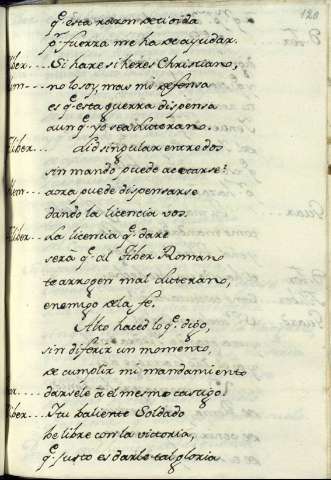 120
q.e esta razon decidida
p.r fuerza me ha de ayudar.
Tiber.... Si hare si heres Christiano,
no lo soy, mas mi defensa
es q.e esta guerra dispensa
aun q.e yo sea Luterano.
Tiber.... Lid singular entre dos
sin mando puede acetarse?
Alem.... aora puede dispensarse
dando la licencia vos.
Tiber.... La licencia q.e dare
sera q.e al Tiber Romano
te arrogen mal Luterano,
enemigo de la fe.
Alto haced lo q.e digo,
sin diferir un momento,
de cumplir mi mandamiento
darsele a el mesmo castigo.
Tiber.... I tu baliente Soldado
be libre con la victoria,
q.e justo es darle tal gloria